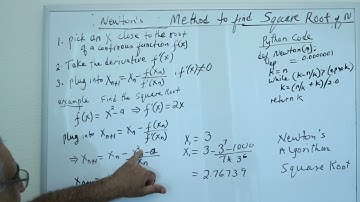 Newton's Method to find Square Root of N
1. pick an X close to the root
of a continous function f(x)
2. Take the derivative f'(x)
3. plug into Xn+1 = Xn - f(xn)/f'(xn), f'(x) ≠ 0
example Find the Square Root
f(x) = x²-a ⇒ f'(x) = 2x
plug into Xn+1 = Xn - f(xn)/f'(xn)
⇒ Xn+1 = Xn -
X1 = 3
= 2.76739
Python Code
def Newton(n):
= 0.000001
k = n
while
k = (n/k + k)/2.0
return k
Newton's
Algorithm
Square Root